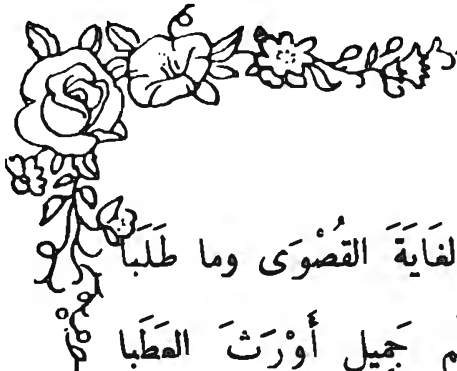 لغَايَةَ القُصْوَى وما طَلَبَا
م جَمِيل أَوْرَثَ العَطَبا